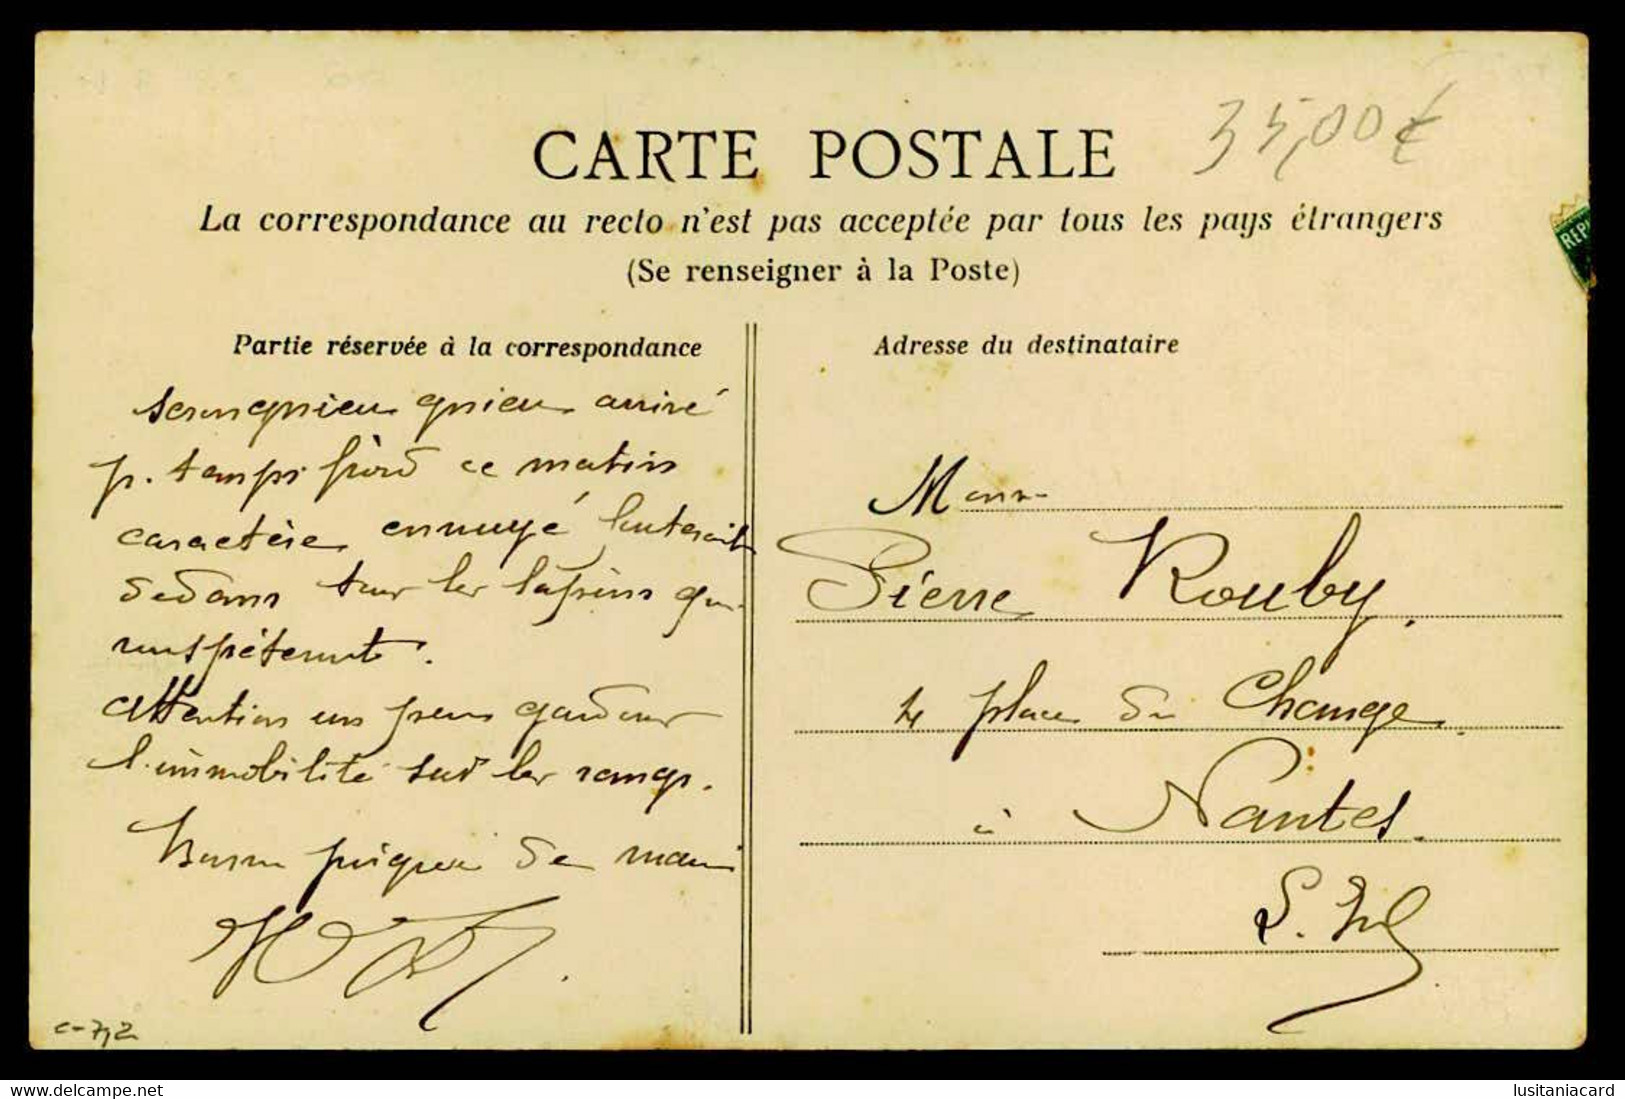 35,00€
CARTE POSTALE
La correspondance au recto n'est pas acceptée par tous les pays étrangers
(Se renseigner à la Poste)
REP
Partie réservée à la correspondance
arrivé
p. temps froid ce matin
caractère ennuyé
dedans sur les lapins qui
rouspètent.
Attention un peu gardons
l'immobilité sur les rangs.
de
c-7,2
Adresse du destinataire
Monsr
Pierre Rouby.
4 place du Change.
à Nantes.
L. Inf
delcampe.net
lusitaniacard